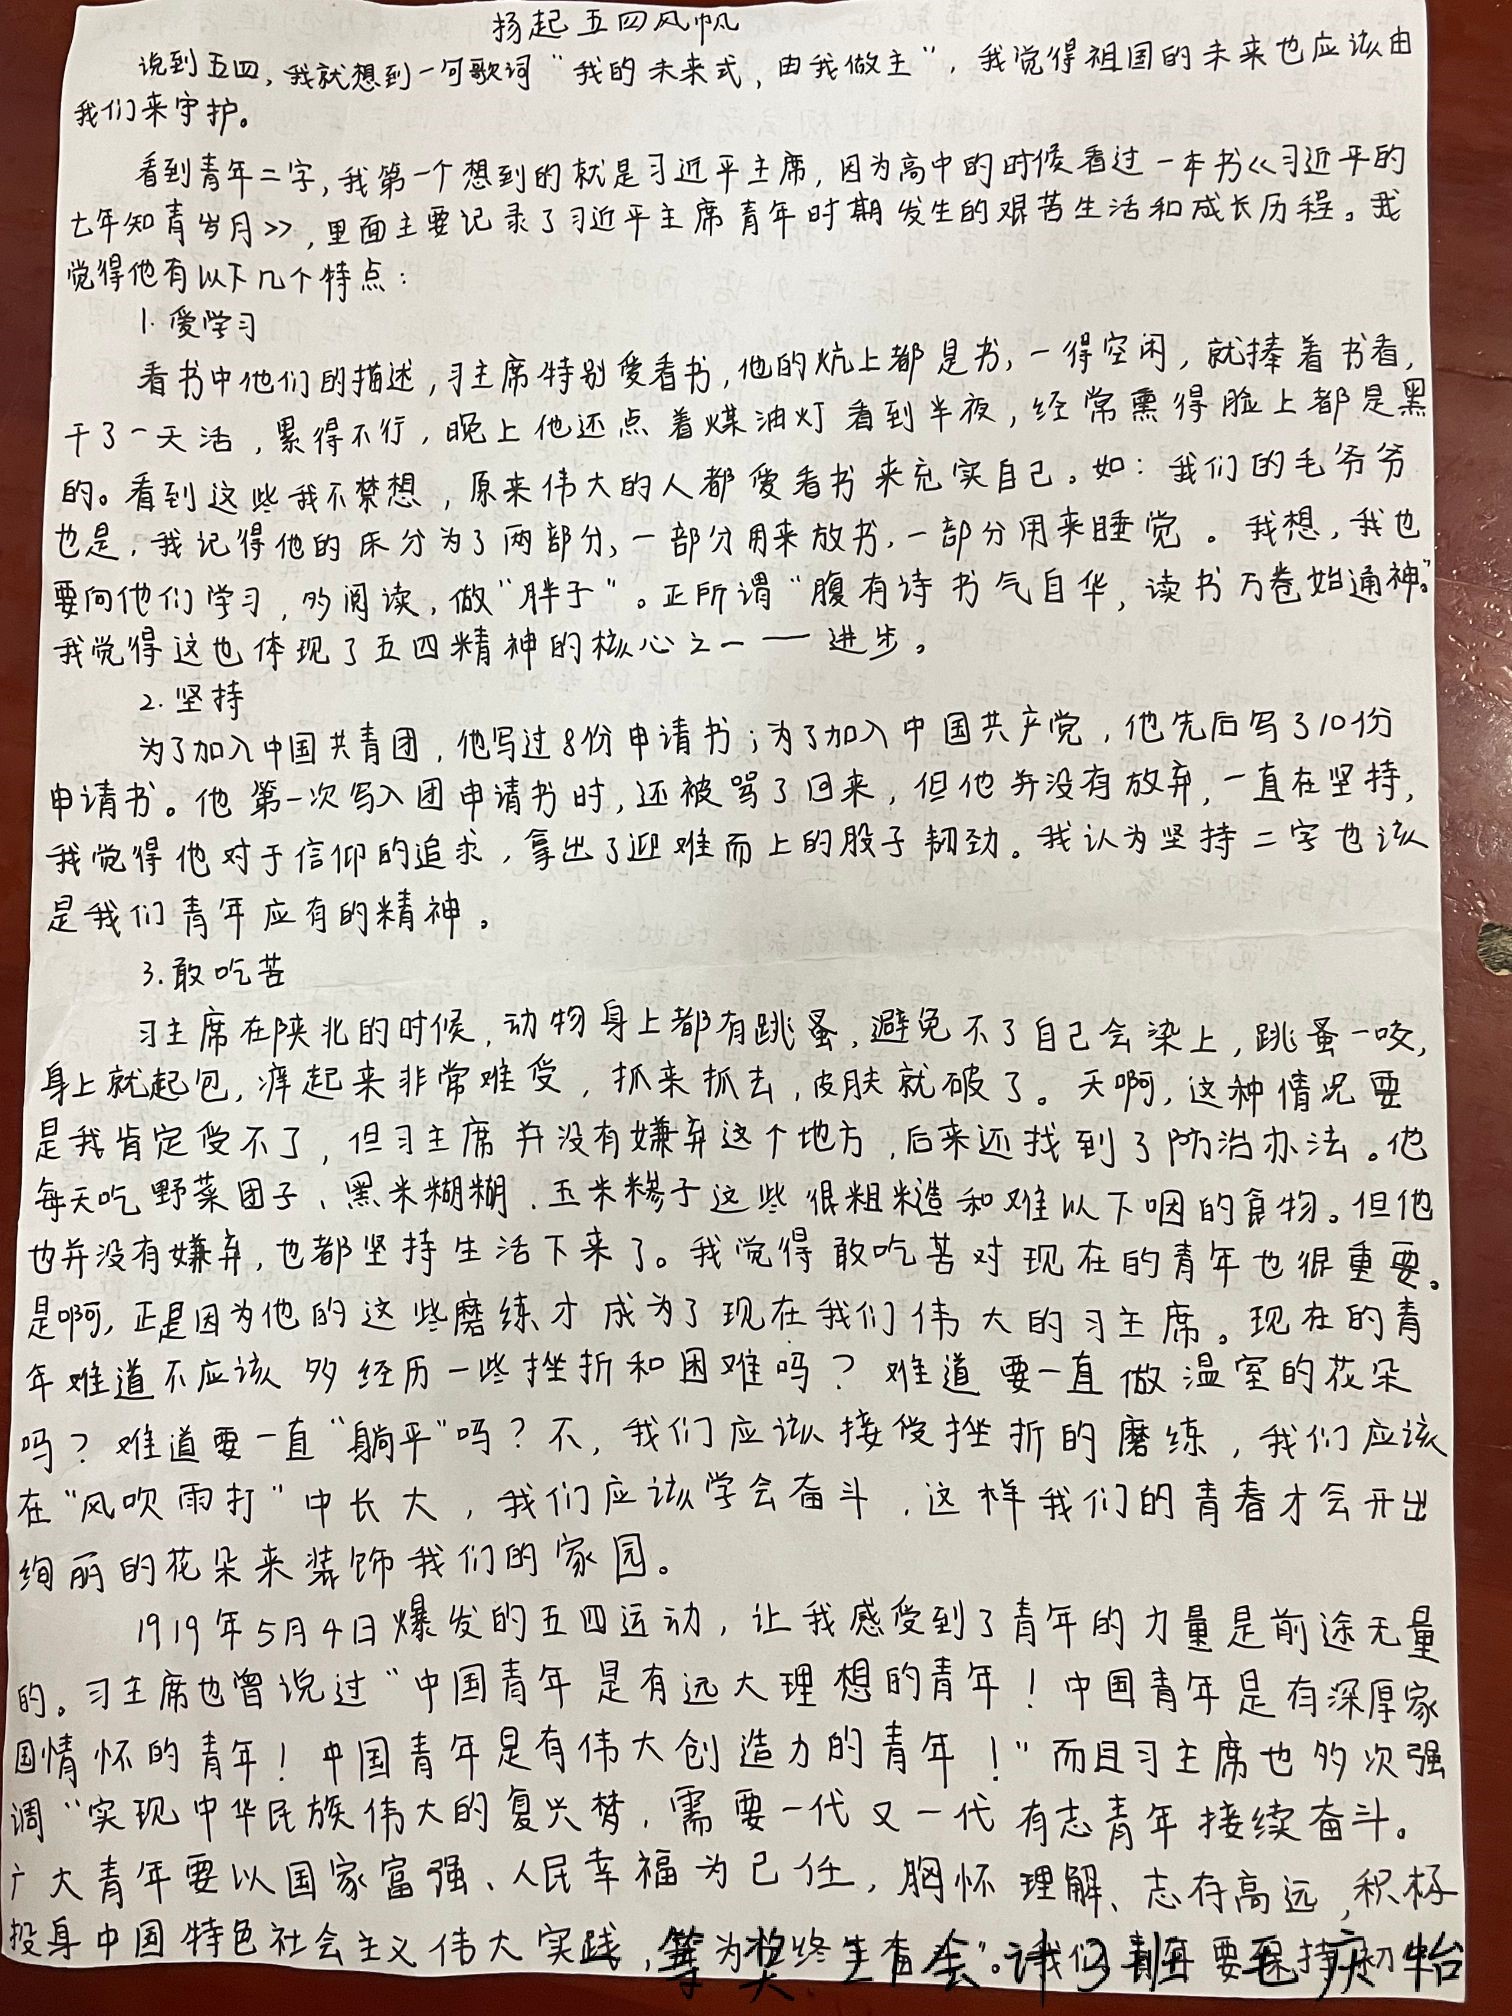 扬起五四风帆
说到五四,我就想到一句歌词“我的未来式,由我做主”,我觉得祖国的未来也应该由
我们来守护。
看到青年二字,我第一个想到的就是习近平主席,因为高中的时候看过一本书《习近平的
七年知青岁月》,里面主要记录了习近平主席青年时期发生的艰苦生活和成长历程。我
觉得他有以下几个特点:
1.爱学习
看书中他们的描述,习主席特别爱看书,他的炕上都是书,一得空闲,就捧着书看,
干了一天活,累得不行,晚上他还点着煤油灯看到半夜,经常熏得脸上都是黑
的。看到这些我不禁想,原来伟大的人都爱看书来充实自己。如:我们的毛爷爷
也是,我记得他的床分为了两部分,一部分用来放书,一部分用来睡觉。我想,我也
要向他们学习,多阅读,做“胖子”。正所谓“腹有诗书气自华,读书万卷始通神。”
我觉得这也体现了五四精神的核心之一——进步。
2.坚持
为了加入中国共青团,他写过8份申请书;为了加入中国共产党,他先后写了10份
申请书。他第一次写入团申请书时,还被骂了回来,但他并没有放弃,一直在坚持,
我觉得他对于信仰的追求,拿出了迎难而上的股子韧劲。我认为坚持二字也该
是我们青年应有的精神。
3.敢吃苦
习主席在陕北的时候,动物身上都有跳蚤,避免不了自己会染上,跳蚤一咬,
身上就起包,痒起来非常难受,抓来抓去,皮肤就破了。天啊,这种情况要
是我肯定受不了,但习主席并没有嫌弃这个地方,后来还找到了防治办法。他
每天吃野菜团子、黑米糊糊、玉米糁子这些很粗糙和难以下咽的食物。但他
也并没有嫌弃,也都坚持生活下来了。我觉得敢吃苦对现在的青年也很重要。
是啊,正是因为他的这些磨练才成为了现在我们伟大的习主席。现在的青
年难道不应该多经历一些挫折和困难吗?难道要一直做温室的花朵
吗?难道要一直“躺平”吗?不,我们应该接受挫折的磨练,我们应该
在“风吹雨打”中长大,我们应该学会奋斗,这样我们的青春才会开出
绚丽的花朵来装饰我们的家园。
1919年5月4日爆发的五四运动,让我感受到了青年的力量是前途无量
的。习主席也曾说过“中国青年是有远大理想的青年!中国青年是有深厚家
国情怀的青年!中国青年是有伟大创造力的青年!”而且习主席也多次强
调“实现中华民族伟大的复兴梦,需要一代又一代有志青年接续奋斗。
广大青年要以国家富强、人民幸福为己任,胸怀理解、志存高远,积极
投身中国特色社会主义伟大实践,
等奖 会计3班 毛庆怡